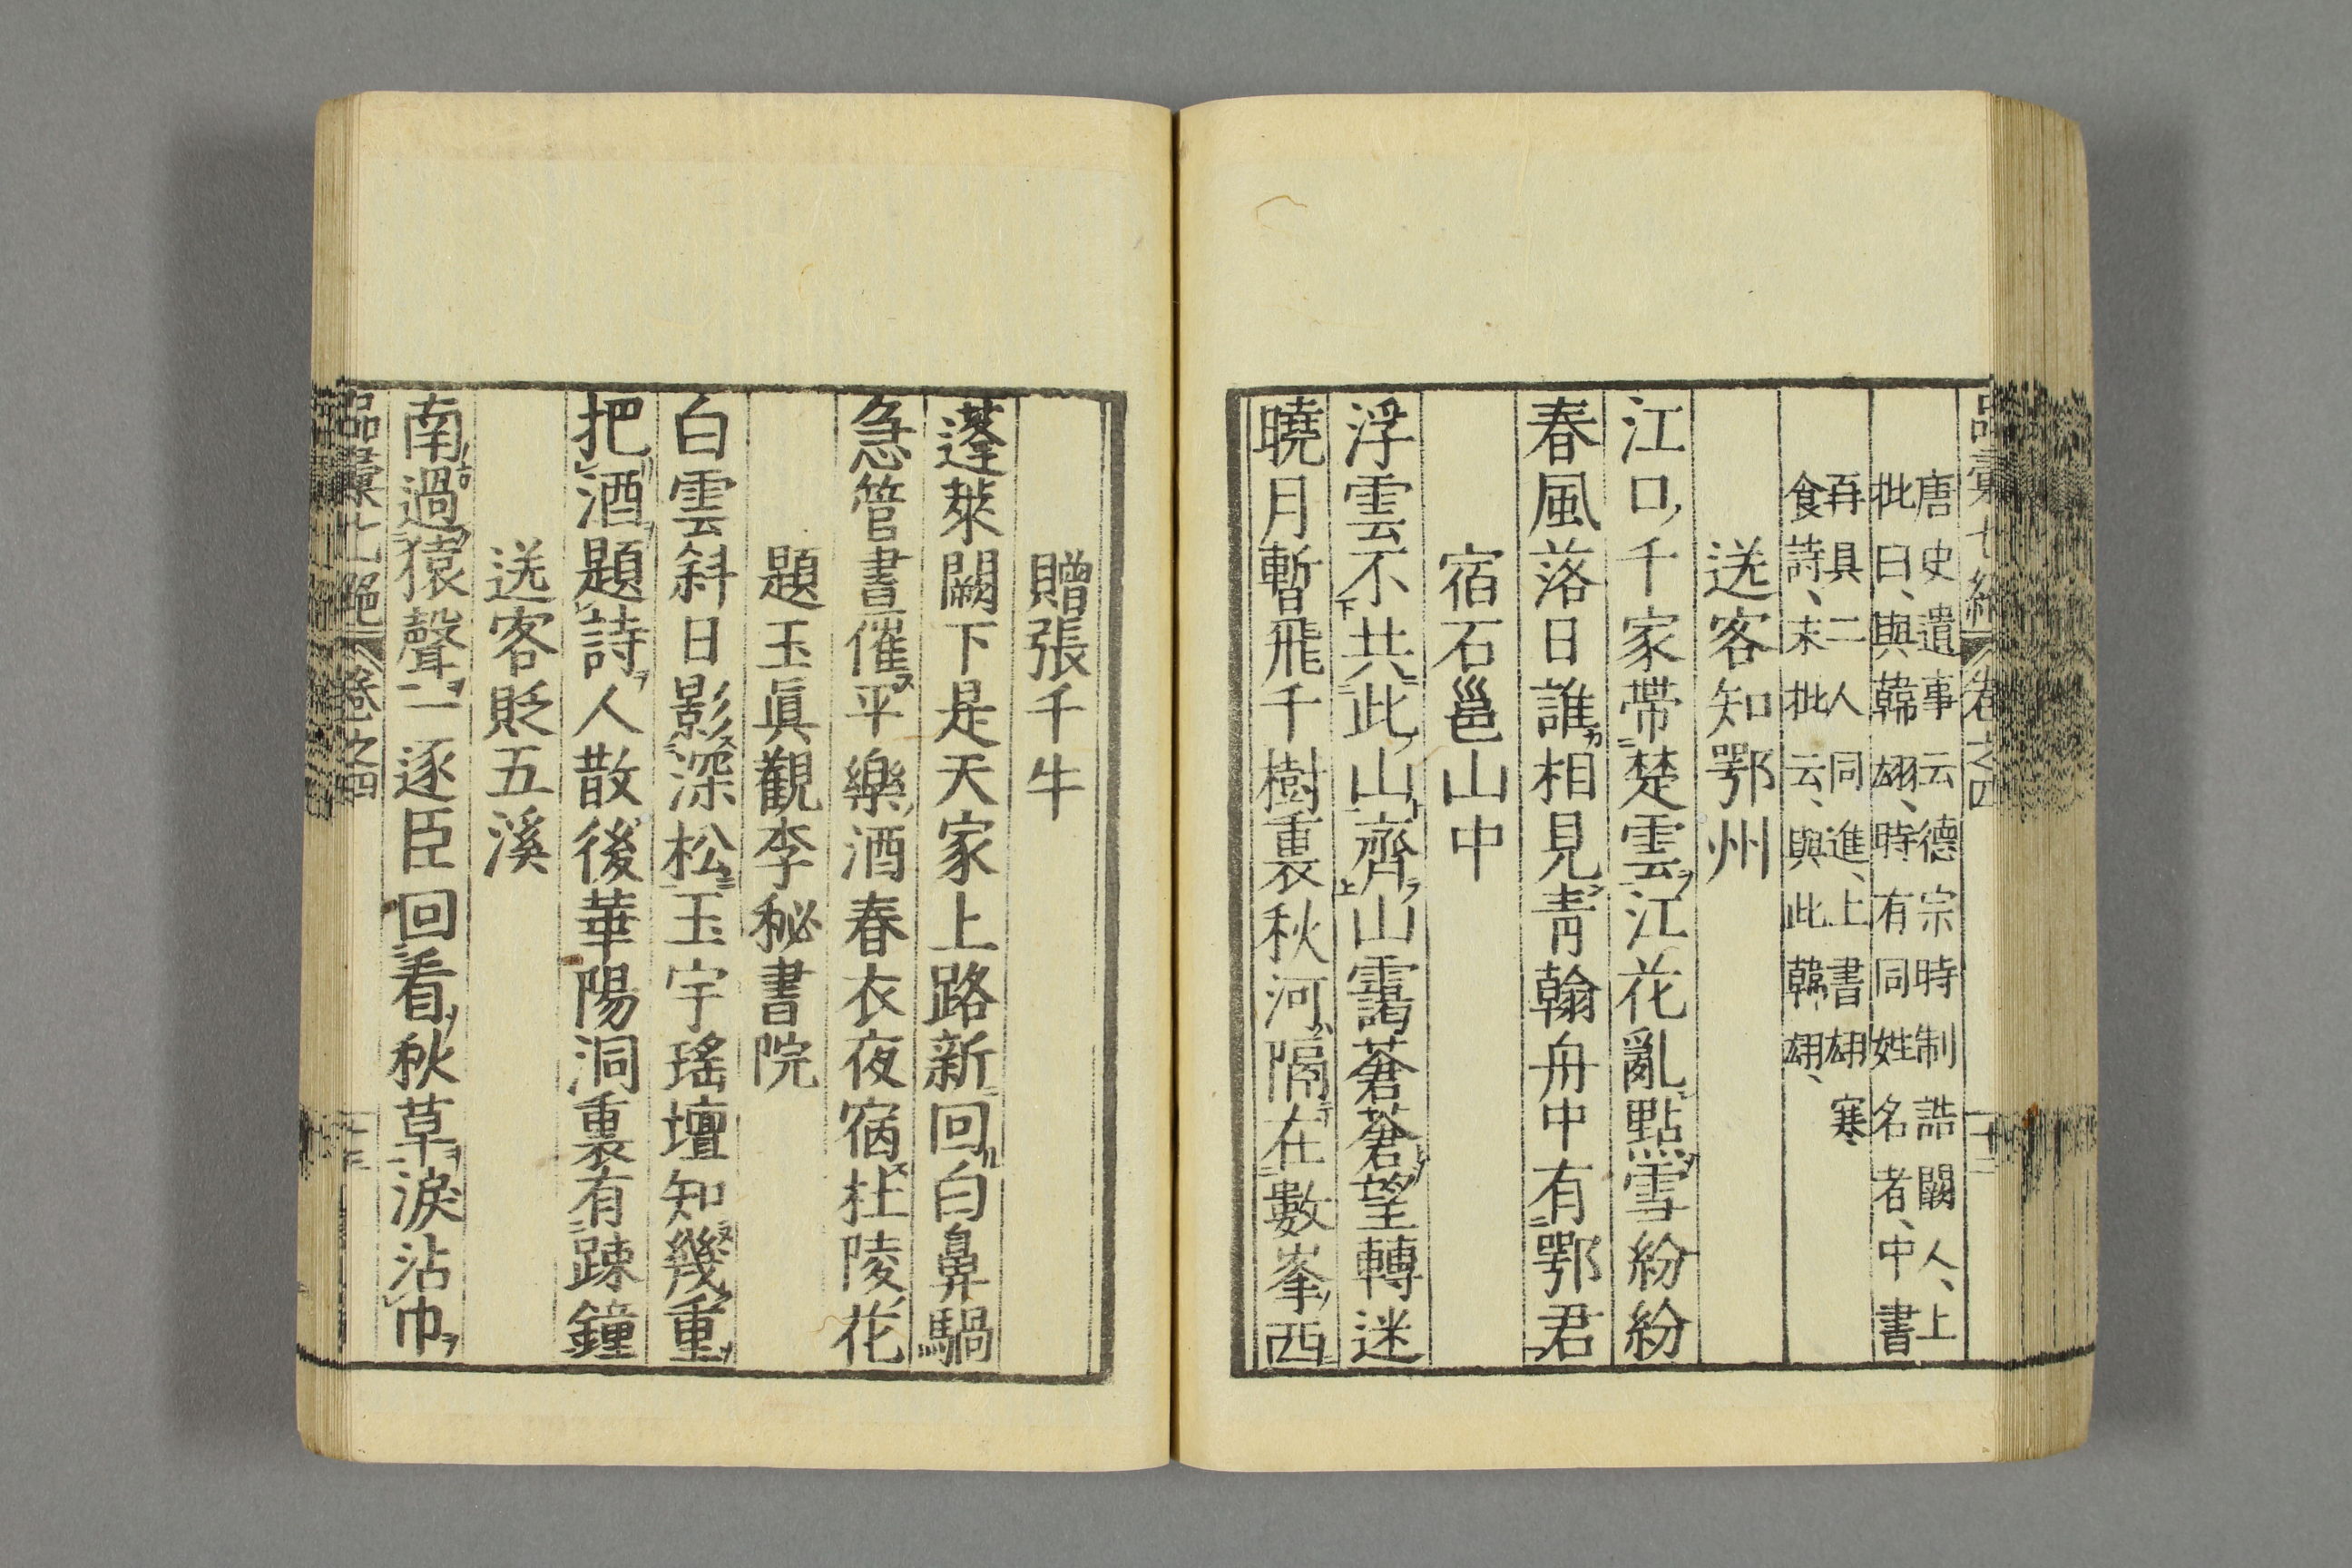 品彙七絶 卷之四
唐史遺事云德宗時制誥闕人、上
批曰、與韓翃、時有同姓名者、中書
再具二人同進、上書翃寒
食詩、末批云、與此韓翃、
送客知鄂州
江口千家帶楚雲江花亂點雪紛紛
春風落日誰相見青翰舟中有鄂君
宿石邕山中
浮雲不共此山齊山靄蒼蒼望轉迷
曉月暫飛千樹裏秋河隔在數峯西
贈張千牛
蓬萊闕下是天家上路新回白鼻騧
急管晝催平樂酒春衣夜宿杜陵花
題玉眞觀李秘書院
白雲斜日影深松玉宇瑤壇知幾重
把酒題詩人散後華陽洞裏有踈鐘
送客貶五溪
南過猿聲一逐臣回看秋草淚沾巾
品彙七絶 卷之四